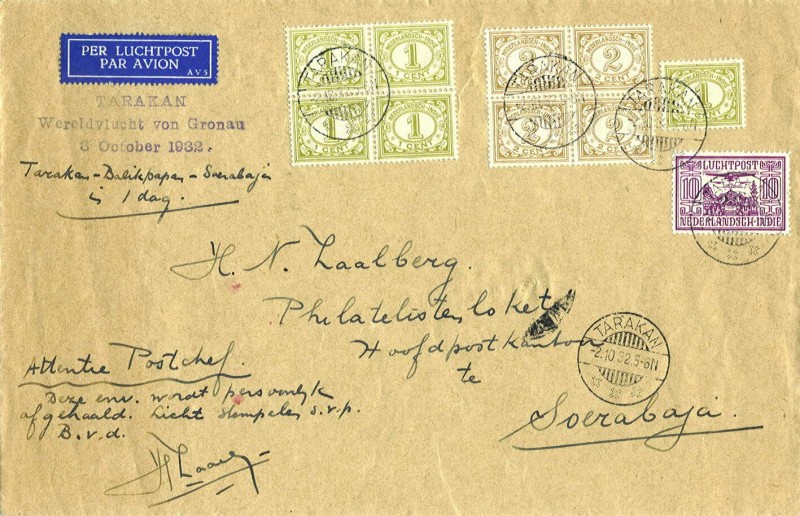 PER LUCHTPOST
PAR AVION
AVS
TARAKAN
Wereldvlucht von Gronau
3 October 1932.
Tarakan-Balikpapan-Soerabaja
in 1 dag.
NEDERLANDSCH-INDIE
1
1 CENT
NEDERLANDSCH-INDIE
1
1 CENT
1
1 CENT
1
1 CENT
TARAKAN
NEDERLANDSCH-INDIE
2
2 CENT
NEDERLANDSCH-INDIE
2
2 CENT
2
2 CENT
2
2 CENT
TARAKAN
1
TARAKAN
LUCHTPOST
10 10
NEDERLANDSCH-INDIE
H. N. Laalberg.
Philatelistenloket
Hoofdpostkantoor
te
Soerabaja.
TARAKAN
-2.10.32.5-6N
Attentie Postchef.
Deze env. wordt persoonlijk
afgehaald. Licht stempelen s.v.p.
B.v.d.